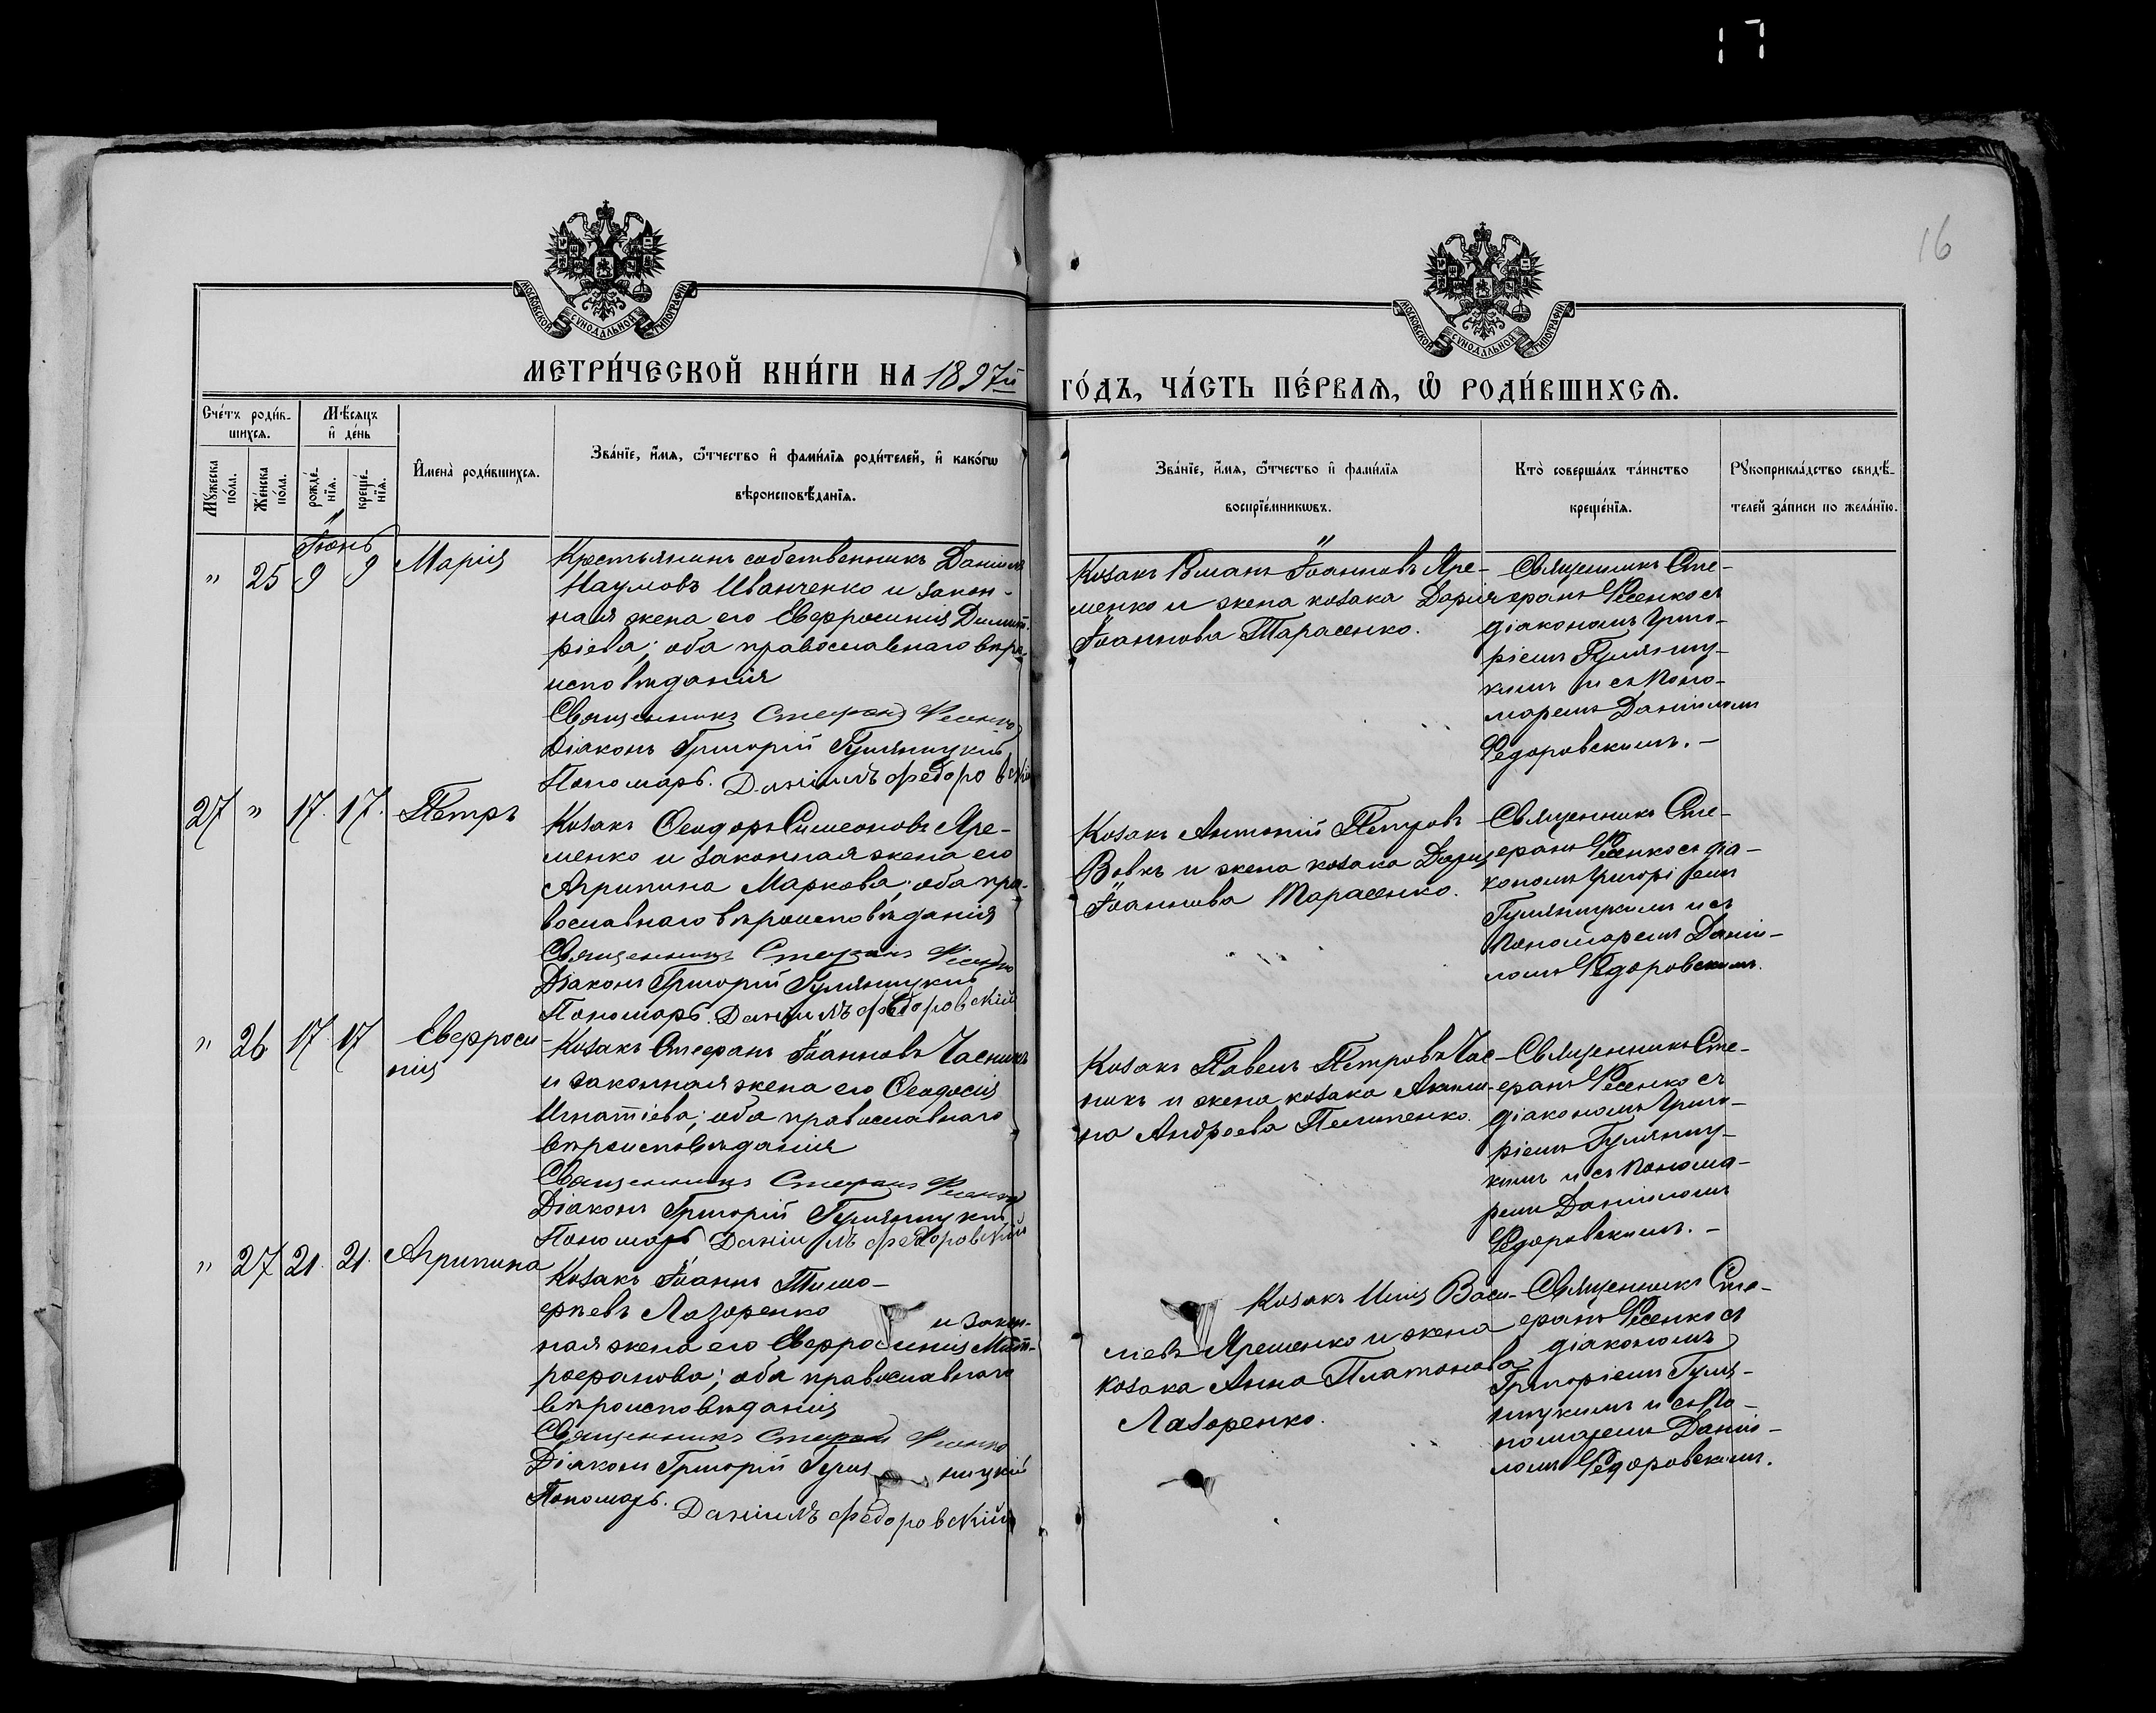 17
16
МОСКОВСКОЙ СѴНОДАЛЬНОЙ ТИПОГРАФІИ
МОСКОВСКОЙ СѴНОДАЛЬНОЙ ТИПОГРАФІИ
МЕТРИ́ЧЕСКОЙ КНИ́ГИ НА 1897й
ГО́ДЪ, ЧА́СТЬ ПЕ́РВАѦ, Ѡ РОДИ́ВШИХСѦ.
Сче́тъ роди́в-
шихсѧ.
Мꙋжеска по́ла.
Же́нска по́ла.
Мѣ́сѧцъ
и҆ де́нь
рожде́-
нїѧ.
креще́-
нїѧ.
И҆мена̀ роди́вшихсѧ.
Зва́нїе, и҆́мѧ, ѻ҆́тчество и҆ фами́лїѧ роди́телей, и҆ како́гѡ
вѣроисповѣ́данїѧ.
Зва́нїе, и҆́мѧ, ѻ҆́тчество и҆ фами́лїѧ
воспрїе́мникѡвъ.
Кто̀ соверша́лъ та́инство
креще́нїѧ.
Рꙋкоприкла́дство свидѣ́-
телей за́писи по жела́нїю.
Іюнь
" 25 9 9 Марія
Крестьянинъ собственникъ Даніилъ
Наумовъ Иванченко и закон-
ная жена его Евфросинія Димит-
ріева; оба православнаго вѣро-
исповѣданія
Священникъ Стефанъ Фесенко
Діаконъ Григорій Гуляницкій
Пономарь. Даніилъ Федоровскій
Козакъ Іоанновъ Яре-
менко и жена козака Дарія
Іоаннова Тарасенко.
Священникъ Сте-
фанъ Фесенко съ
діакономъ Григо-
ріемъ Гуляниц-
кимъ и съ поно-
маремъ Даніиломъ
Федоровскимъ. —
27 " 17. 17. Петръ
Козакъ Ѳеодоръ Симеоновъ Яре-
менко и законная жена его
Агрипина Маркова; оба пра-
вославнаго вѣроисповѣданія
Священникъ Стефанъ Фесенко
Діаконъ Григорій Гуляницкій
Пономарь. Даніилъ Федоровскій
Козакъ Антоній Петровъ
Вовкъ и жена козака Дарія
Іоаннова Тарасенко.
Священникъ Сте-
фанъ Фесенко съ діа-
кономъ Григоріемъ
Гуляницкимъ и съ
пономаремъ Дані-
ломъ Федоровскимъ.
" 26 17 17 Евфроси-
нія
Козакъ Стефанъ Іоанновъ Часникъ
и законная жена его Ѳеодосія
Игнатіева; оба православнаго
вѣроисповѣданія
Священникъ Стефанъ Фесенко
Діаконъ Григорій Гуляницкій
Пономарь Даніилъ Федоровскій
Козакъ Павелъ Петровъ Час-
никъ и жена козака Акили-
на Андреева
Священникъ Сте-
фанъ Фесенко съ
діакономъ Григо-
ріемъ Гуляниц-
кимъ и съ понома-
ремъ Даніиломъ
Федоровскимъ. —
" 27 21. 21. Агрипина
Козакъ Іоаннъ Тимо-
феевъ Лазоренко и закон-
ная жена его Евфросинія Мит-
рофанова; оба православнаго
вѣроисповѣданія
Священникъ Стефанъ Фесенко
Діаконъ Григорій Гуляницкій
Пономарь. Даніилъ Федоровскій
Козакъ Илія Васи-
ліевъ Яременко и жена
козака Анна Платонова
Лазоренко.
Священникъ Сте-
фанъ Фесенко съ
діакономъ
Григоріемъ Гуля-
ницкимъ и съ по-
номаремъ Даніи-
ломъ Федоровскимъ.